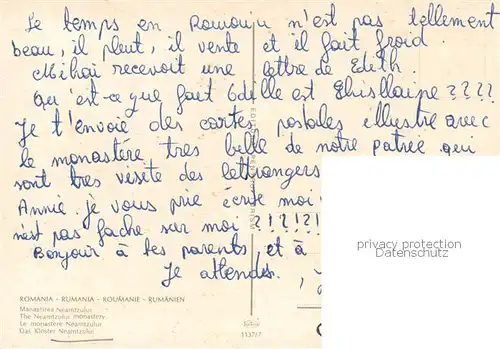 Le temps en Roumanie n'est pas tellement
beau, il pleut, il vente et il fait froid.
Mihai recevoit une lettre de Edith.
Qu'est-ce que fait Odille est Ghisllaine ????
Je t'envoie des cartes postales illustre avec
le monastère tres belle de notre patrie qui
sont tres visite des lettrangers
Annie. je vous prie écrire moi
n'est pas fache sur moi ?!?!?!
Bonjour à tes parents, et à
Je attendes.
privacy protection
Datenschutz
ROMANIA - RUMANIA - ROUMANIE - RUMÄNIEN
Manastirea Neamtzului
The Neamtzului monastery
Le monastère Neamtzului
Das Kloster Neamtzului
1137/7